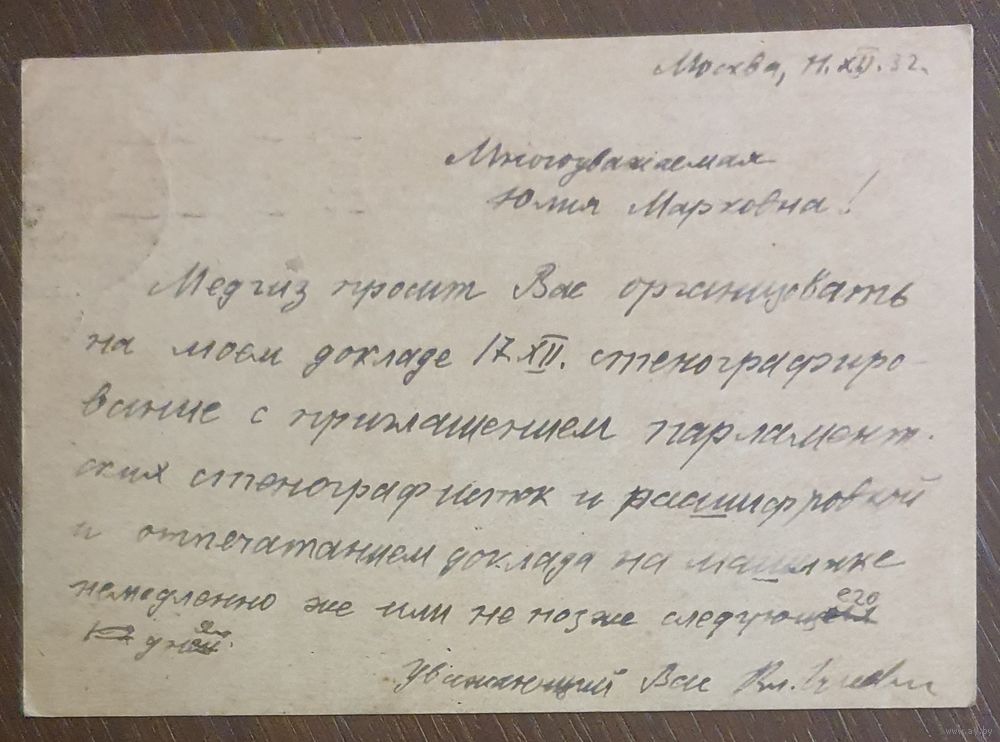 Москва, 11.XII.32.
Многоуважаемая
Юлия Марковна!
Медгиз просит Вас организовать
на моем докладе 17 XII. стенографиро-
вание с приглашением парламент-
ских стенографисток и расшифровкой
и отпечатанием доклада на машинке
немедленно же или не позже следующего
дня.
Уважающий Вас Вл.
www.ay.by